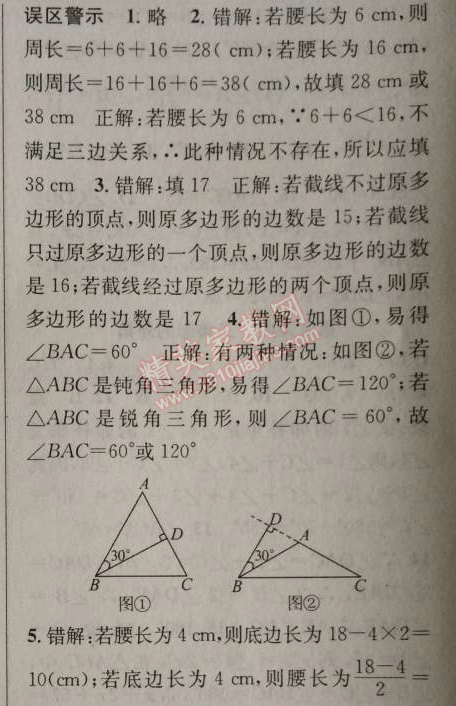 误区警示 1. 略 2. 错解:若腰长为 6 cm,则
周长=6+6+16=28( cm);若腰长为 16 cm,
则周长=16+16+6=38( cm),故填 28 cm 或
38 cm 正解:若腰长为 6 cm,∵6+6<16,不
满足三边关系,∴此种情况不存在,所以应填
38 cm 3. 错解:填 17 正解:若截线不过原多
边形的顶点,则原多边形的边数是 15;若截线
只过原多边形的一个顶点,则原多边形的边数
是 16;若截线经过原多边形的两个顶点,则原
多边形的边数是 17 4. 错解:如图①,易得
∠BAC=60° 正解:有两种情况:如图②,若
△ABC 是钝角三角形,易得∠BAC=120°;若
△ABC 是锐角三角形,则∠BAC=60°,故
∠BAC=60°或 120°
A
D
30°
B
C
图①
D
A
30°
B
C
图②
5. 错解:若腰长为 4 cm,则底边长为 18-4×2=
10(cm);若底边长为 4 cm,则腰长为 (18-4)/2=
精英家教网